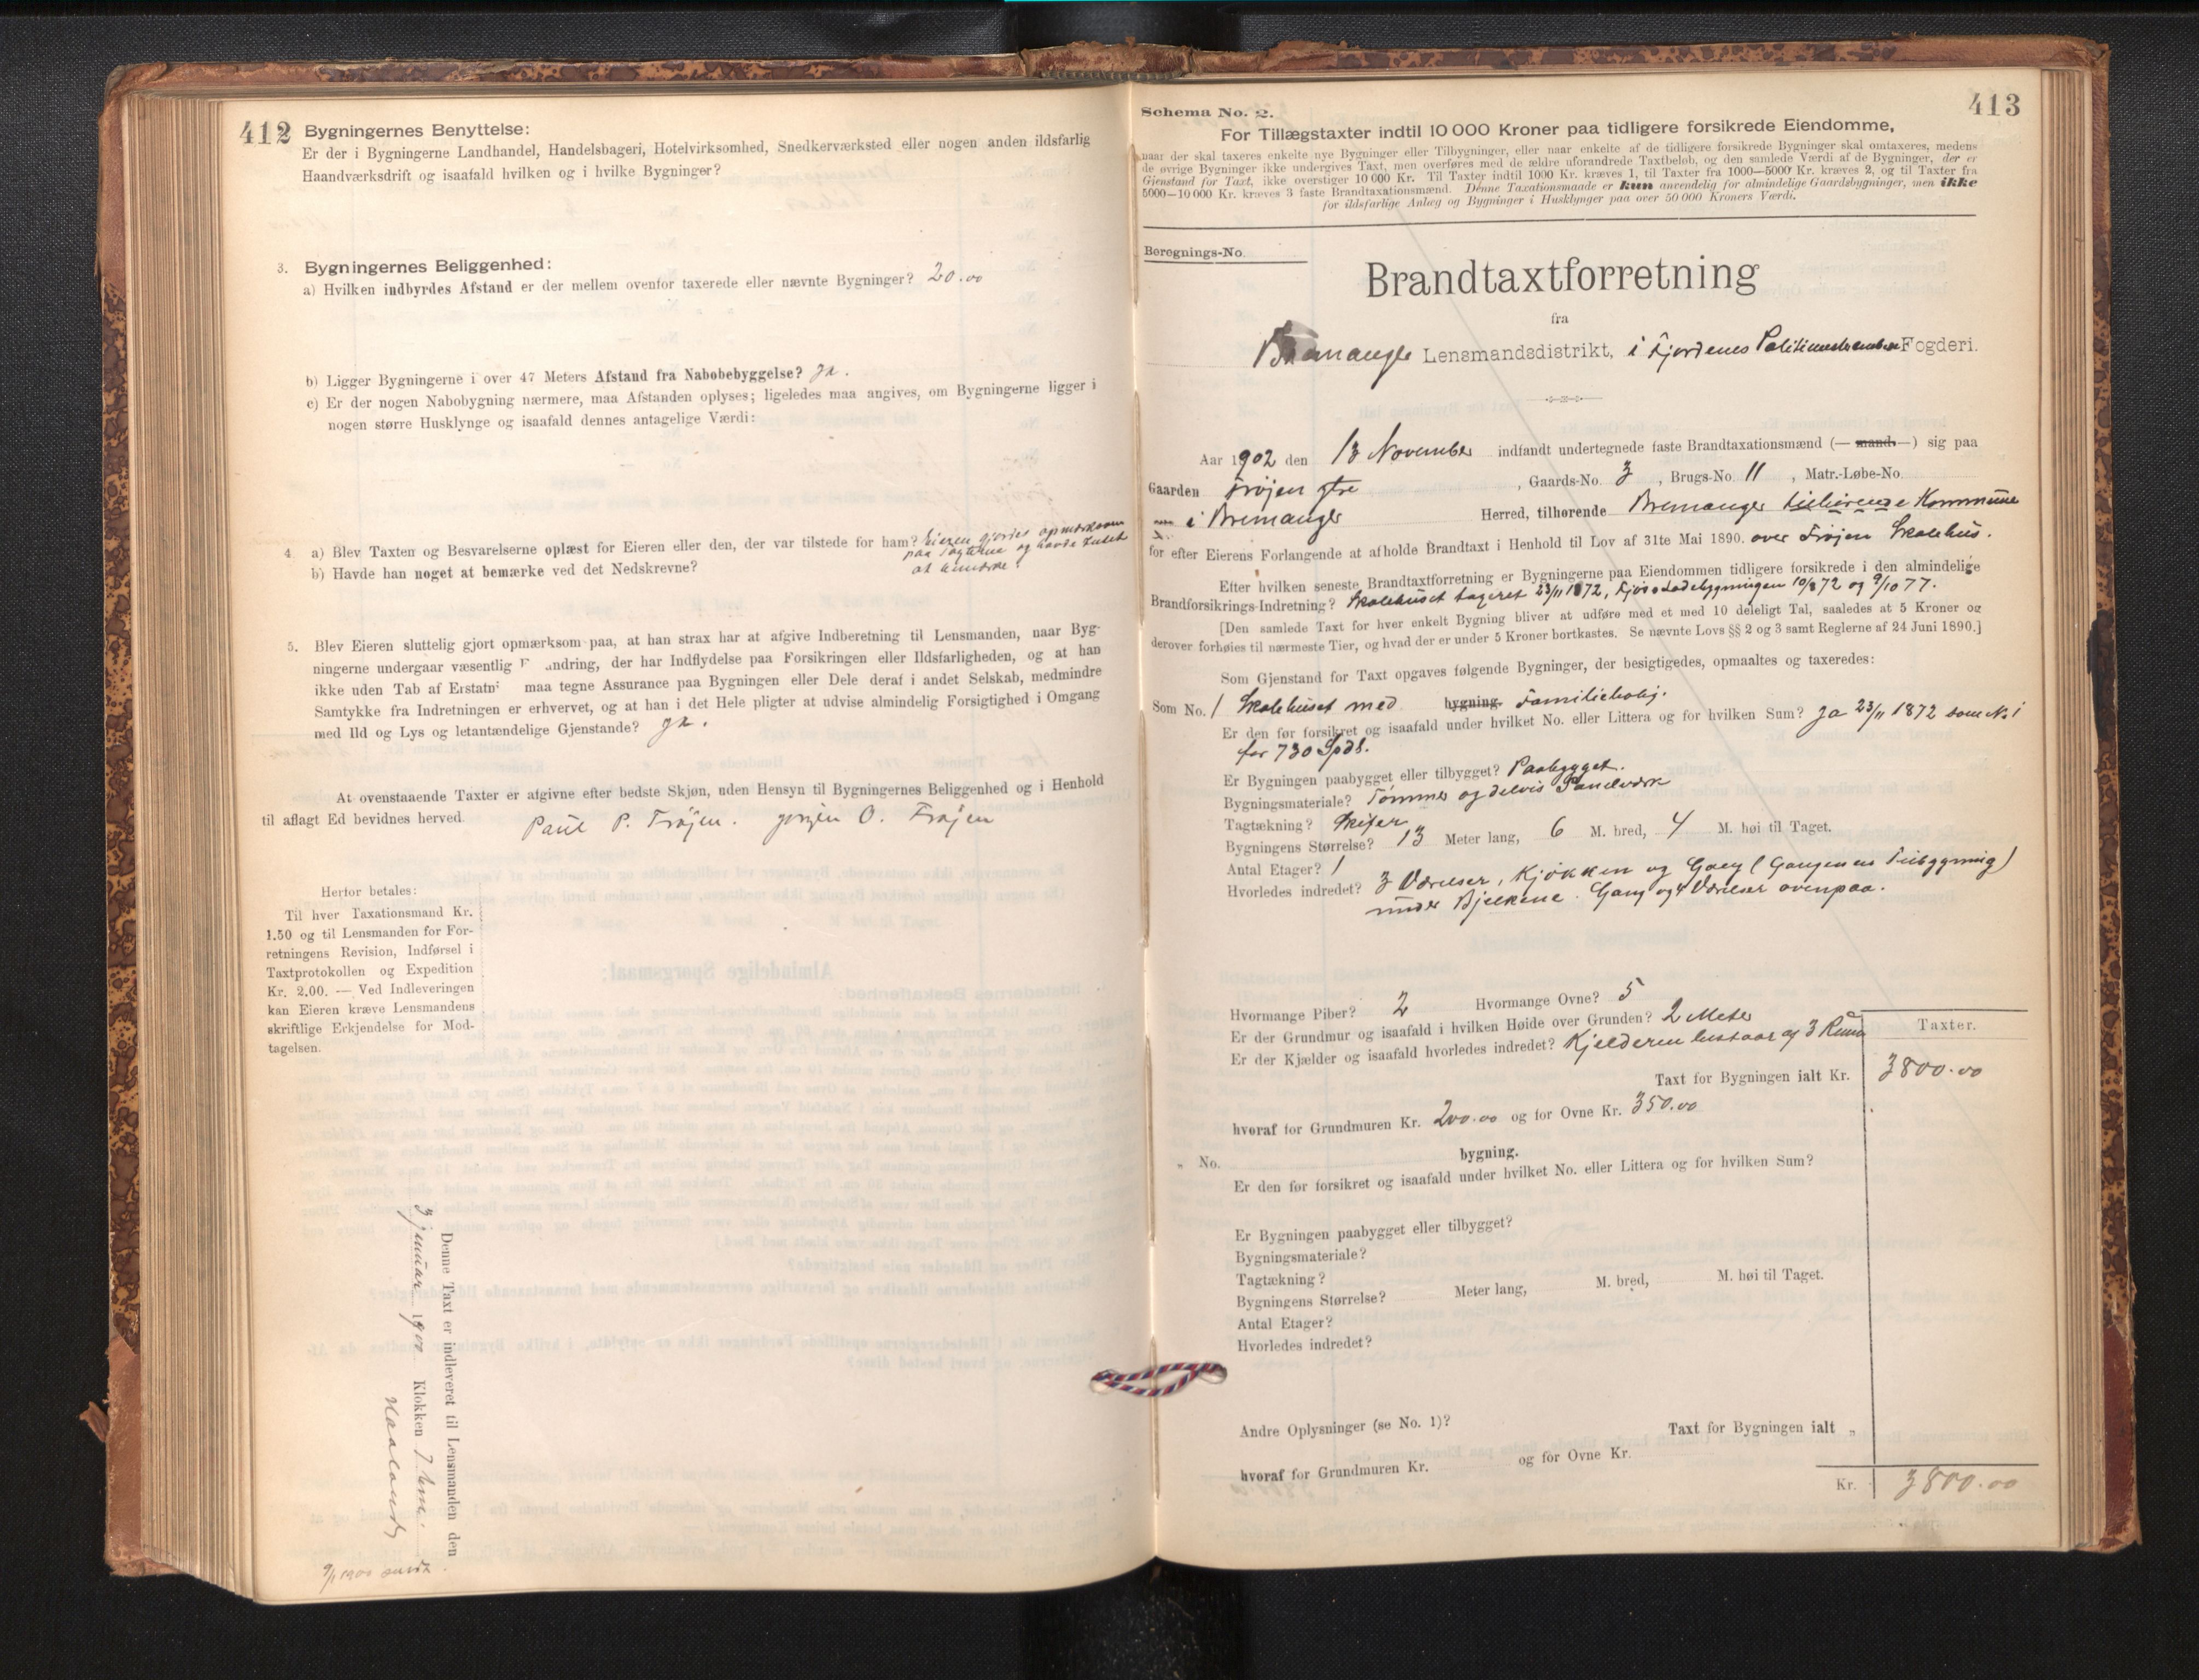 412
Bygningernes Benyttelse:
Er der i Bygningerne Landhandel, Handelsbageri, Hotelvirksomhed, Snedkerværksted eller nogen anden ildsfarlig
Haandværksdrift og isaafald hvilken og i hvilke Bygninger?
3. Bygningernes Beliggenhed:
a) Hvilken indbyrdes Afstand er der mellem ovenfor taxerede eller nævnte Bygninger? 20.00
b) Ligger Bygningerne i over 47 Meters Afstand fra Nabobebyggelse? Ja.
c) Er der nogen Nabobygning nærmere, maa Afstanden oplyses; ligeledes maa angives, om Bygningerne ligger i
nogen større Husklynge og isaafald dennes antagelige Værdi:
4. a) Blev Taxten og Besvarelserne oplæst for Eieren eller den, der var tilstede for ham? Eieren gjordes opmærksom
paa Taxterne og havde Intet
b) Havde han noget at bemærke ved det Nedskrevne? at bemærke.
5. Blev Eieren sluttelig gjort opmærksom paa, at han strax har at afgive Indberetning til Lensmanden, naar Byg-
ningerne undergaar væsentlig F andring, der har Indflydelse paa Forsikringen eller Ildsfarligheden, og at han
ikke uden Tab af Erstatni maa tegne Assurance paa Bygningen eller Dele deraf i andet Selskab, medmindre
Samtykke fra Indretningen er erhvervet, og at han i det Hele pligter at udvise almindelig Forsigtighed i Omgang
med Ild og Lys og letantændelige Gjenstande? Ja.
At ovenstaaende Taxter er afgivne efter bedste Skjøn, uden Hensyn til Bygningernes Beliggenhed og i Henhold
til aflagt Ed bevidnes herved.
Paul P. Frøjen. Jørgen O. Frøjen
Herfor betales:
Til hver Taxationsmand Kr.
1.50 og til Lensmanden for For-
retningens Revision, Indførsel i
Taxtprotokollen og Expedition
Kr. 2.00. — Ved Indleveringen
kan Eieren kræve Lensmandens
skriftlige Erkjendelse for Mod-
tagelsen.
Denne Taxt er indleveret til Lensmanden den
3 januar 1900 Klokken 7
9/1 1900 sendt.
413
Schema No. 2.
For Tillægstaxter indtil 10 000 Kroner paa tidligere forsikrede Eiendomme,
naar der skal taxeres enkelte nye Bygninger eller Tilbygninger, eller naar enkelte af de tidligere forsikrede Bygninger skal omtaxeres, medens
de øvrige Bygninger ikke undergives Taxt, men overføres med de ældre uforandrede Taxtbeløb, og den samlede Værdi af de Bygninger, der er
Gjenstand for Taxt, ikke overstiger 10 000 Kr. Til Taxter indtil 1000 Kr. kræves 1, til Taxter fra 1000—5000 Kr. kræves 2, og til Taxter fra
5000—10 000 Kr. kræves 3 faste Brandtaxationsmænd. Denne Taxationsmaade er kun anvendelig for almindelige Gaardsbygninger, men ikke
for ildsfarlige Anlæg og Bygninger i Husklynger paa over 50 000 Kroners Værdi.
Beregnings-No.
Brandtaxtforretning
fra
Bremanger Lensmandsdistrikt, i Fjordenes Politimesterembede Fogderi.
Aar 1902 den 13 November indfandt undertegnede faste Brandtaxationsmænd (— mand. —) sig paa
Gaarden Frøjen ytre, Gaards-No. 3, Brugs-No. 11, Matr.-Løbe-No.
i Bremanger Herred, tilhørende Bremanger tilhørende Kommune
for efter Eierens Forlangende at afholde Brandtaxt i Henhold til Lov af 31te Mai 1890. over Frøjen Skolehus.
Efter hvilken seneste Brandtaxtforretning er Bygningerne paa Eiendommen tidligere forsikrede i den almindelige
Brandforsikrings-Indretning? Skolehuset taxeret 23/11 1872, Fjøs o Ladebygningen 10/8 72 og 9/10 77.
[Den samlede Taxt for hver enkelt Bygning bliver at udføre med et med 10 deleligt Tal, saaledes at 5 Kroner og
derover forhøies til nærmeste Tier, og hvad der er under 5 Kroner bortkastes. Se nævnte Lovs §§ 2 og 3 samt Reglerne af 24 Juni 1890.]
Som Gjenstand for Taxt opgaves følgende Bygninger, der besigtigedes, opmaaltes og taxeredes:
Som No. 1 Skolehuset med bygning. Familiebolig.
Er den før forsikret og isaafald under hvilket No. eller Littera og for hvilken Sum? Ja 23/11 1872 som No 1
for 730 Spdl.
Er Bygningen paabygget eller tilbygget? Paabygget.
Bygningsmateriale? Tømmer og delvis Panelværk
Tagtækning? Skifer
Bygningens Størrelse? 13 Meter lang, 6 M. bred, 4 M. høi til Taget.
Antal Etager? 1
Hvorledes indredet? 3 Værelser, Kjøkken og Gang (Gangen en Tilbygning)
under Bjelkene. Gang og 4 Værelser ovenpaa.
Hvormange Piber? 2 Hvormange Ovne? 5
Er der Grundmur og isaafald i hvilken Høide over Grunden? 2 Meter
Er der Kjælder og isaafald hvorledes indredet? Kjelderen bestaar af 3 Rum
Taxter.
Taxt for Bygningen ialt Kr. 3800.00
hvoraf for Grundmuren Kr. 200.00 og for Ovne Kr. 350.00
„ No. bygning.
Er den før forsikret og isaafald under hvilket No. eller Littera og for hvilken Sum?
Er Bygningen paabygget eller tilbygget?
Bygningsmateriale?
Tagtækning?
Bygningens Størrelse? Meter lang, M. bred, M. høi til Taget.
Antal Etager?
Hvorledes indredet?
Andre Oplysninger (se No. 1)? Taxt for Bygningen ialt „
hvoraf for Grundmuren Kr. og for Ovne Kr.
Kr. 3800.00